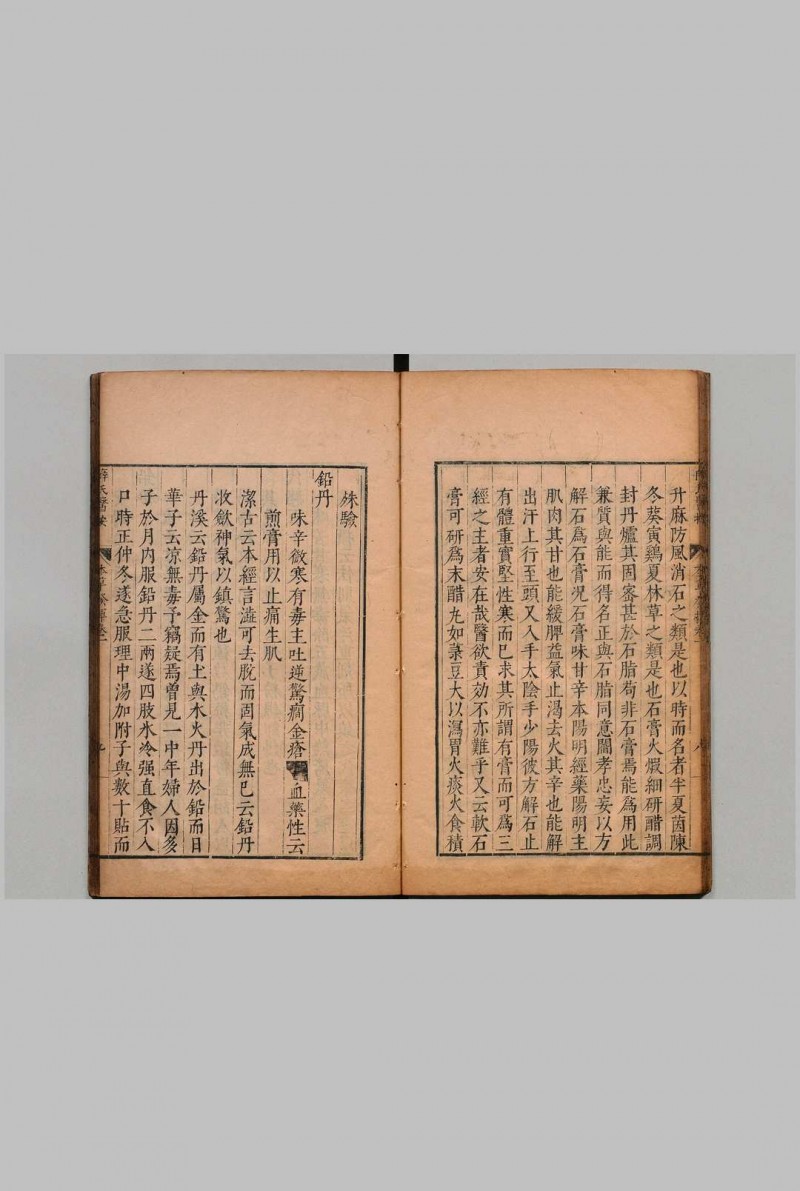 升麻防風消石之類是也以時而名者半夏茵陳
冬葵寅鷄夏林草之類是也石膏火煅細研醋調
封丹爐其固濟甚於石脂苟非石膏焉能爲用此
兼質與能而得名正與石脂同意閻孝忠妄以方
解石爲石膏况石膏味甘辛本陽明經藥陽明主
肌肉其甘也能緩脾益氣止渴去火其辛也能解
出汗上行至頭又入手太陰手少陽彼方解石止
有體重實堅性寒而已求其所謂有膏而可爲三
經之主者安在哉醫欲責効不亦難乎又云軟石
膏可研爲末醋丸如菉豆大以瀉胃火痰火食積
殊驗
鉛丹
味辛微寒有毒主吐逆驚癎金瘡血藥性云
煎膏用以止痛生肌
潔古云本經言澁可去脫而固氣成無已云鉛丹
收斂神氣以鎮驚也
丹溪云鉛丹屬金而有土與水火丹出於鉛而曰
華子云凉無毒予竊疑焉曽見一中年婦人因多
子於月內服鉛丹二兩遂四肢氷冷强直食不入
口時正仲冬遂急服理中湯加附子與數十貼而
薛氏醫按